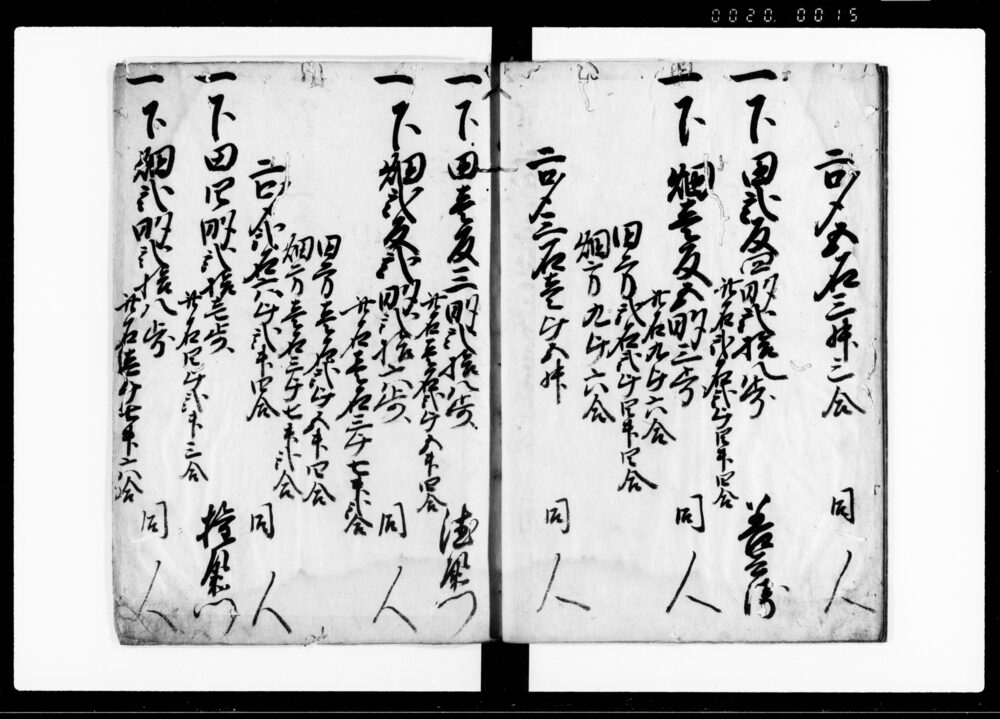 0020. 0015
二口〆五石三升二合 同人
一下田弐反四畝弐拾八歩 善兵衛
此石弐石弐斗四升四合
一下畑壱反五畝三歩 同人
此石九斗六合
田方弐石弐斗四升四合
畑方九斗六合
二口〆三石壱斗五升 同人
一下田壱反三畝弐拾八歩
此石壱石弐斗五升四合
一下畑弐反弐畝弐拾六歩 同人
此石壱石三斗七升弐合
田方壱石弐斗五升四合
畑方壱石三斗七升弐合
二口〆弐石六斗弐升六合 同人
一下田四畝弐拾壱歩
此石四斗弐升三合
一下畑弐畝弐拾八歩 同人
此石壱斗七升六合